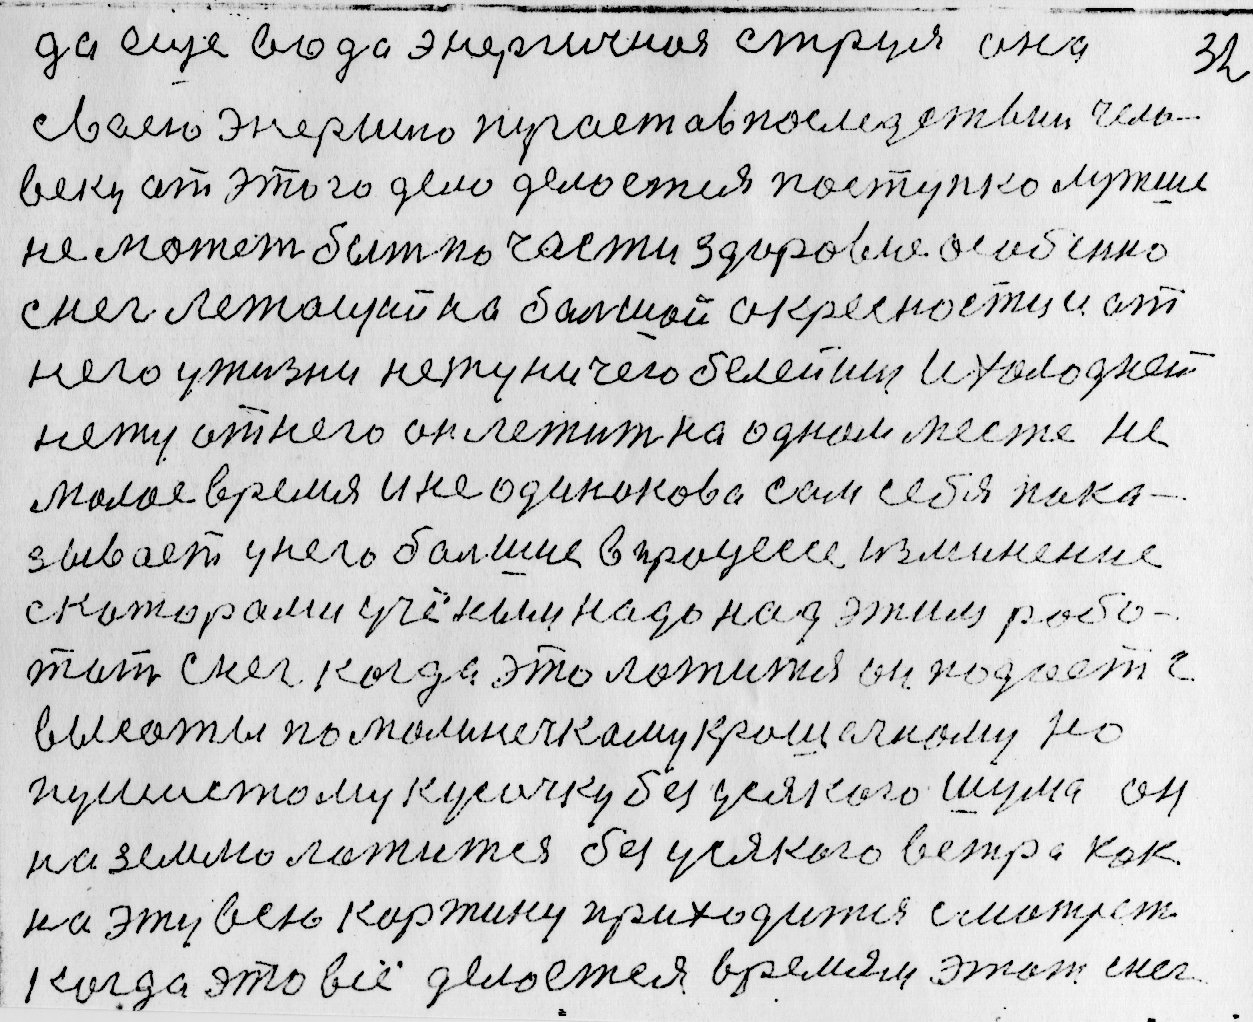 да еще вода энергичная струя она 32
сваею энергию пускает в последствии чело-
веку от этого дело делается поступко лучше
не может быт по части здоровле особенно
снег летащий на балшой окресности и от
него у жизни нету ничего белейши и холоднеи
нету от него он лежит на одном месте не
малое время и не одинокова сам себя пака-
зывает у него балшие в процессе изминение
с каторами учёным надо над этим рабо-
тат снег когда это ложится он подает с
высоты по малинечкаму крошачному но
пушистому кусочку без усякого шума он
на землю ложится без усякого ветра как
на эту всю картину приходится смотрет
когда это всё делается времям этот снег